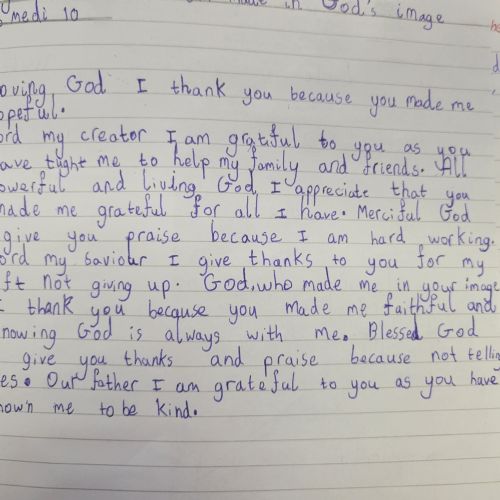 in God's image
medi 10
oving God I thank you because you made me
opeful.
ord my creator I am gratiful to you as you
ave tught me to help my family and friends. All
owerful and living God, I appreciate that you
made me grateful for all I have. Merciful God
give you praise because I am hard working.
ord my saviour I give thanks to you for my
ft not giving up. God, who made me in your image
I thank you because you made me faithful and
nowing God is always with me. Blessed God
give you thanks and praise because not tellin
es. Our father I am grateful to you as you have
hown me to be kind.